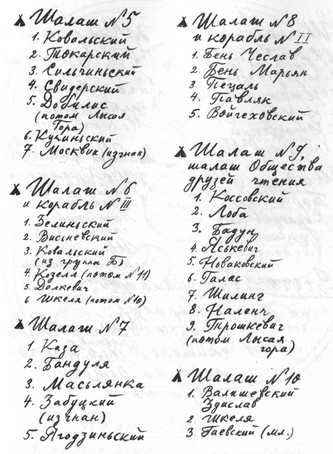 Шалаш №5
1. Ковальский
2. Токарский
3. Сильчиньский
4. Свидерский
5. Добилис
(потом Лысая
Гора)
6. Кучиньский
7. Москвик (изгнан)
Шалаш №6
и корабль № III
1. Зелиньский
2. Висьневский
3. Ковальский
(из группы Б)
4. Козелл (потом №11)
5. Долкевич
6. Шкеля (потом №10)
Шалаш №7
1. Каза
2. Бандуля
3. Масьлянка
4. Забуцкий
(изгнан)
5. Ягодзиньский
Шалаш №8
и корабль № II
1. Бень Чеслав
2. Бень Марьян
3. Пецаль
4. Павляк
5. Войчеховский
Шалаш №9,
шалаш Общества
друзей чтения
1. Коссовский
2. Лоба
3. Бадум
4. Яскевич
5. Новаковский
6. Галас
7. Шилинг
8. Наленч
9. Трошкевич
(потом Лысая
гора)
Шалаш №10
1. Валишевский
Здислав
2. Шкеля
3. Гаевский (мл.)